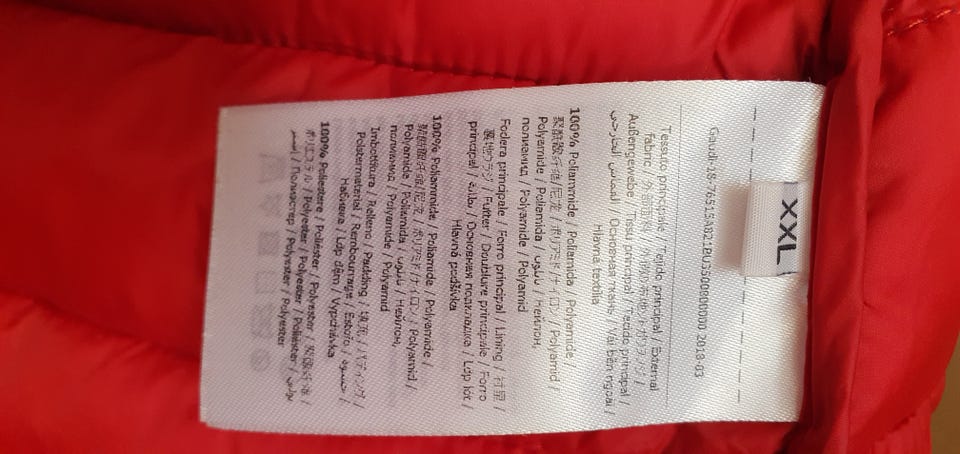 XXL
Tessuto principale / Tejido principal / External
fabric /
Außengewebe / Tissu principal / Tecido principal /
القماش الخارجي / Основная ткань / Vải bên ngoài /
Hlavní textilia
100% Poliammide / Poliamida / Polyamide /
聚酰胺纤维/尼龙 / ポリアミド/ナイロン / Polyamid /
Polyamide / Poliamida / نايلون / Нейлон,
полиамид / Polyamide / Polyamid
Fodera principale / Forro principal / Lining / 衬里 /
裏地 / Futter / Doublure principale / Forro
principal / بطانة / Основная подкладка / Lớp lót /
Hlavná podšívka
100% Poliammide / Poliamida / Polyamide /
聚酰胺纤维/尼龙 / ポリアミド/ナイロン / Polyamid /
Polyamide / Poliamida / نايلون / Нейлон,
полиамид / Polyamide / Polyamid
Imbottitura / Relleno / Padding / 填充 / パディング /
Polstermaterial / Rembourrage / Estofo / حشوة /
Набивка / Lớp đệm / Vypchávka
100% Poliestere / Poliéster / Polyester / 聚酯纤维 /
ポリエステル / Polyester / Polyester / Poliéster / بوليستر / Полиэстер / Polyester / Polyester